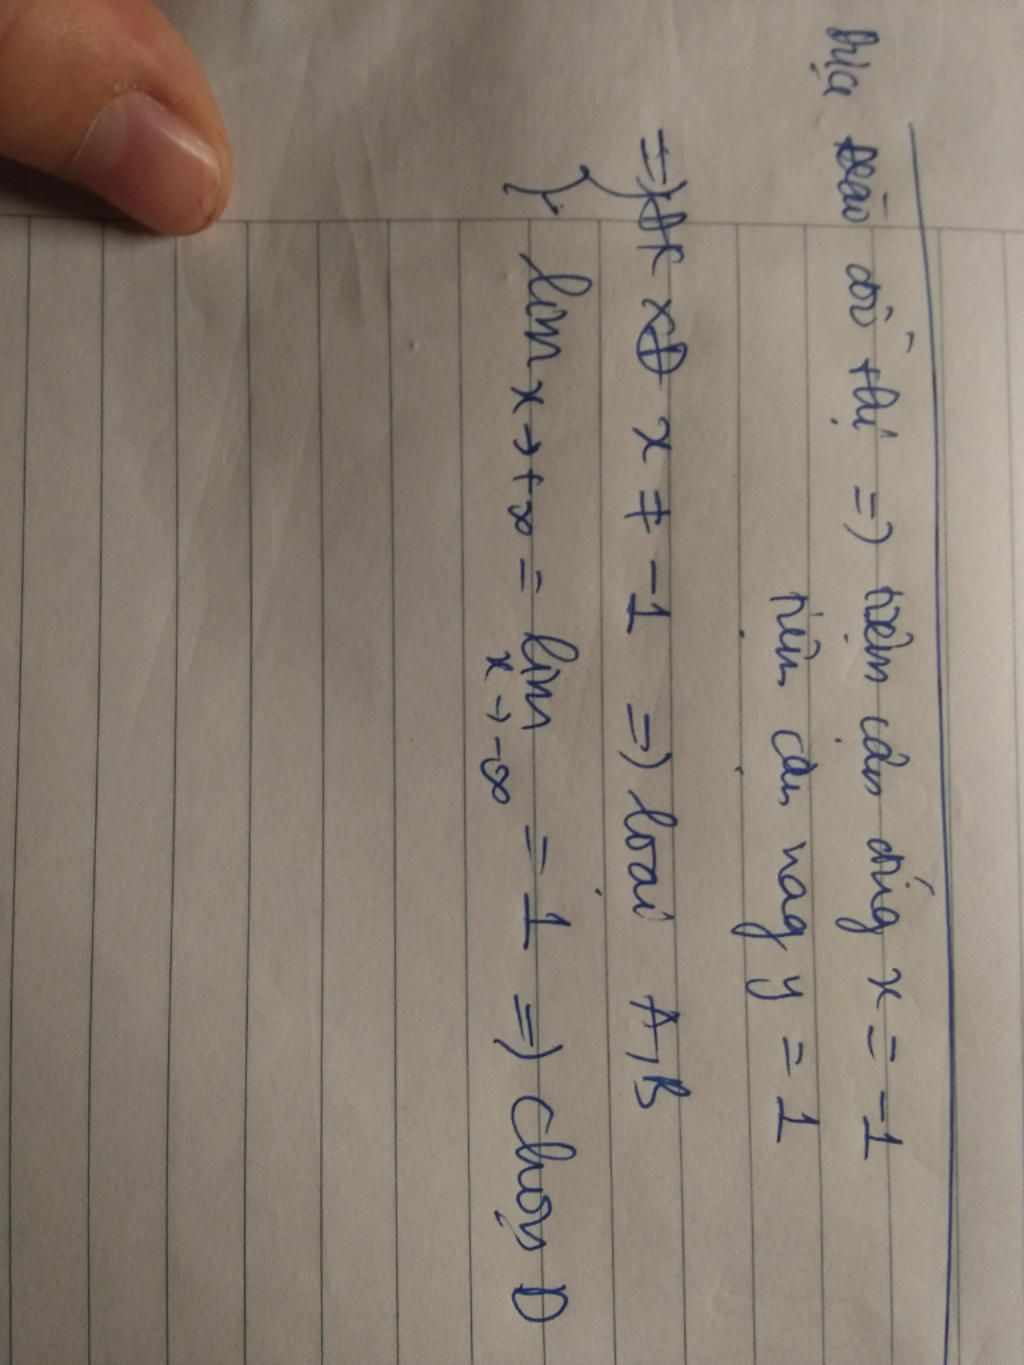 Dựa vào đồ thị => tiệm cận đứng x = -1
tiệm cận ngag y = 1
=> ĐK xĐ x ≠ -1 => loại A, B
lim x→+∞ = lim x→-∞ = 1 => chọn D